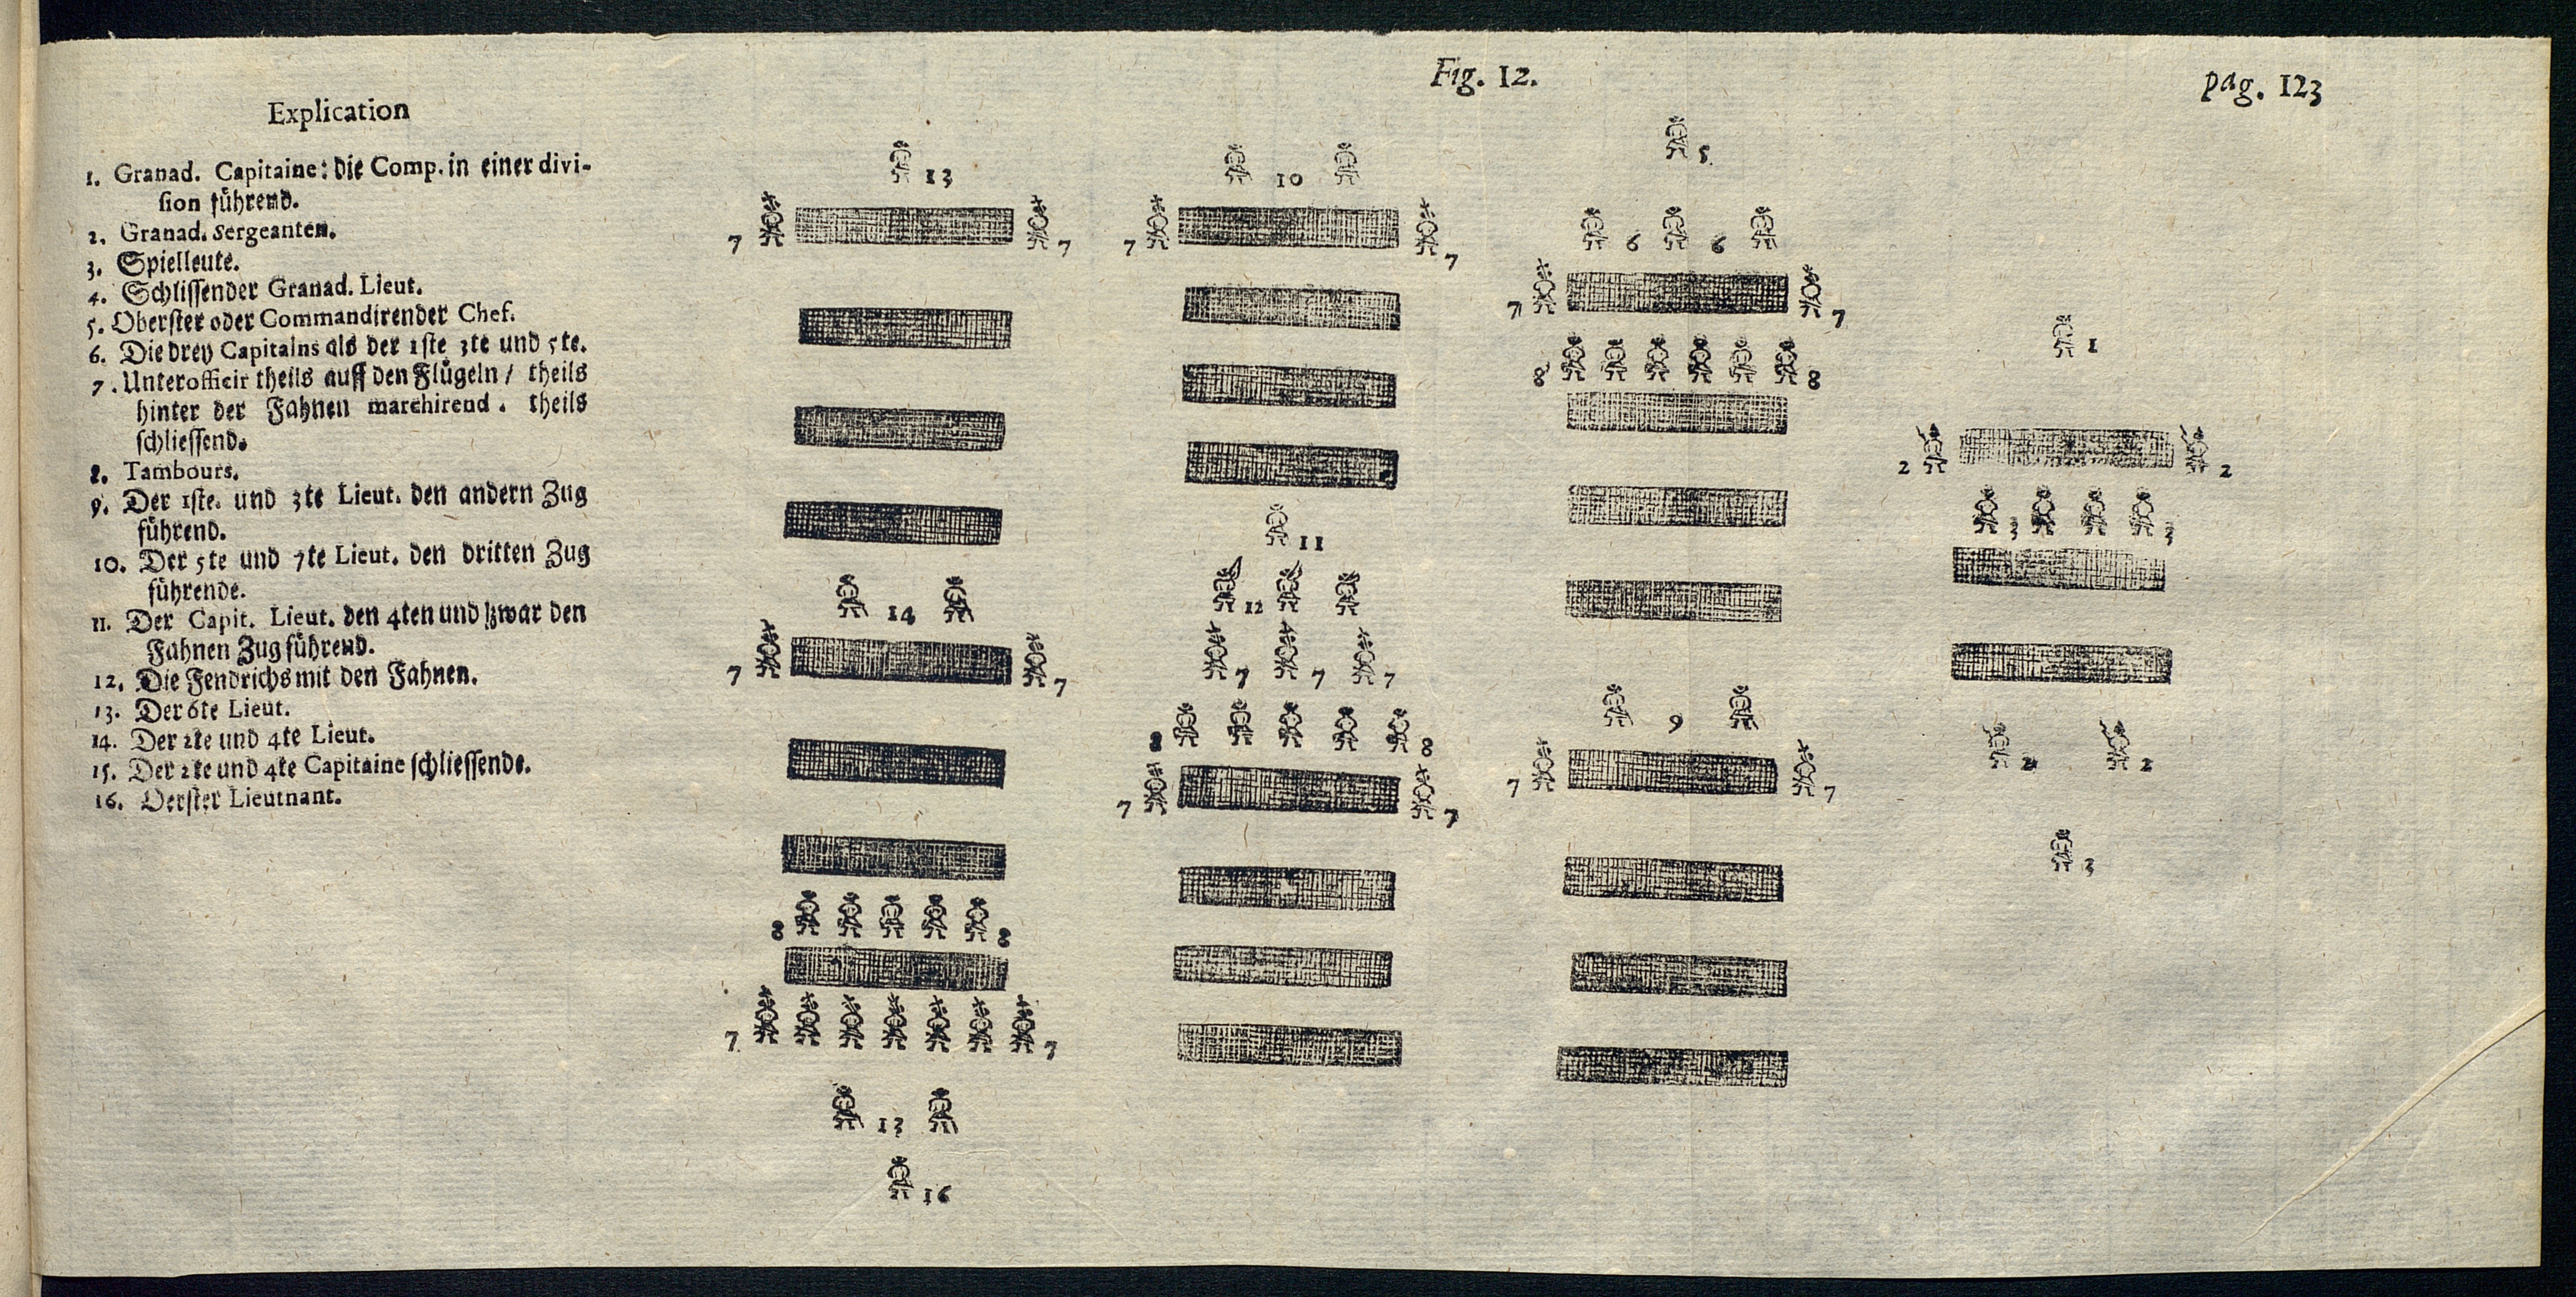 Fig. 12.
pag. 123
Explication
1. Granad. Capitaine: die Comp. in einer divi-
sion führend.
2. Granad. Sergeanten.
3. Spielleute.
4. Schlissender Granad. Lieut.
5. Oberster oder Commandirender Chef.
6. Die drey Capitains als der 1ste 3te und 5te.
7. Unterofficir theils auff den Flügeln / theils
hinter der Fahnen marchirend. theils
schliessend.
8. Tambours.
9. Der 1ste. und 3te Lieut. den andern Zug
führend.
10. Der 5te und 7te Lieut. den dritten Zug
führende.
11. Der Capit. Lieut. den 4ten und zwar den
Fahnen Zug führend.
12. Die Fendrichs mit den Fahnen.
13. Der 6te Lieut.
14. Der 2te und 4te Lieut.
15. Der 2te und 4te Capitaine schliessende.
16. Oerster Lieutnant.
13
7 7
14
7 7
8 8
7 7
13
16
10
7 7
11
12
7 7 7
8 8
7 7
5
6 6
7 7
8 8
9
7 7
1
2 2
3 3
2 2
3